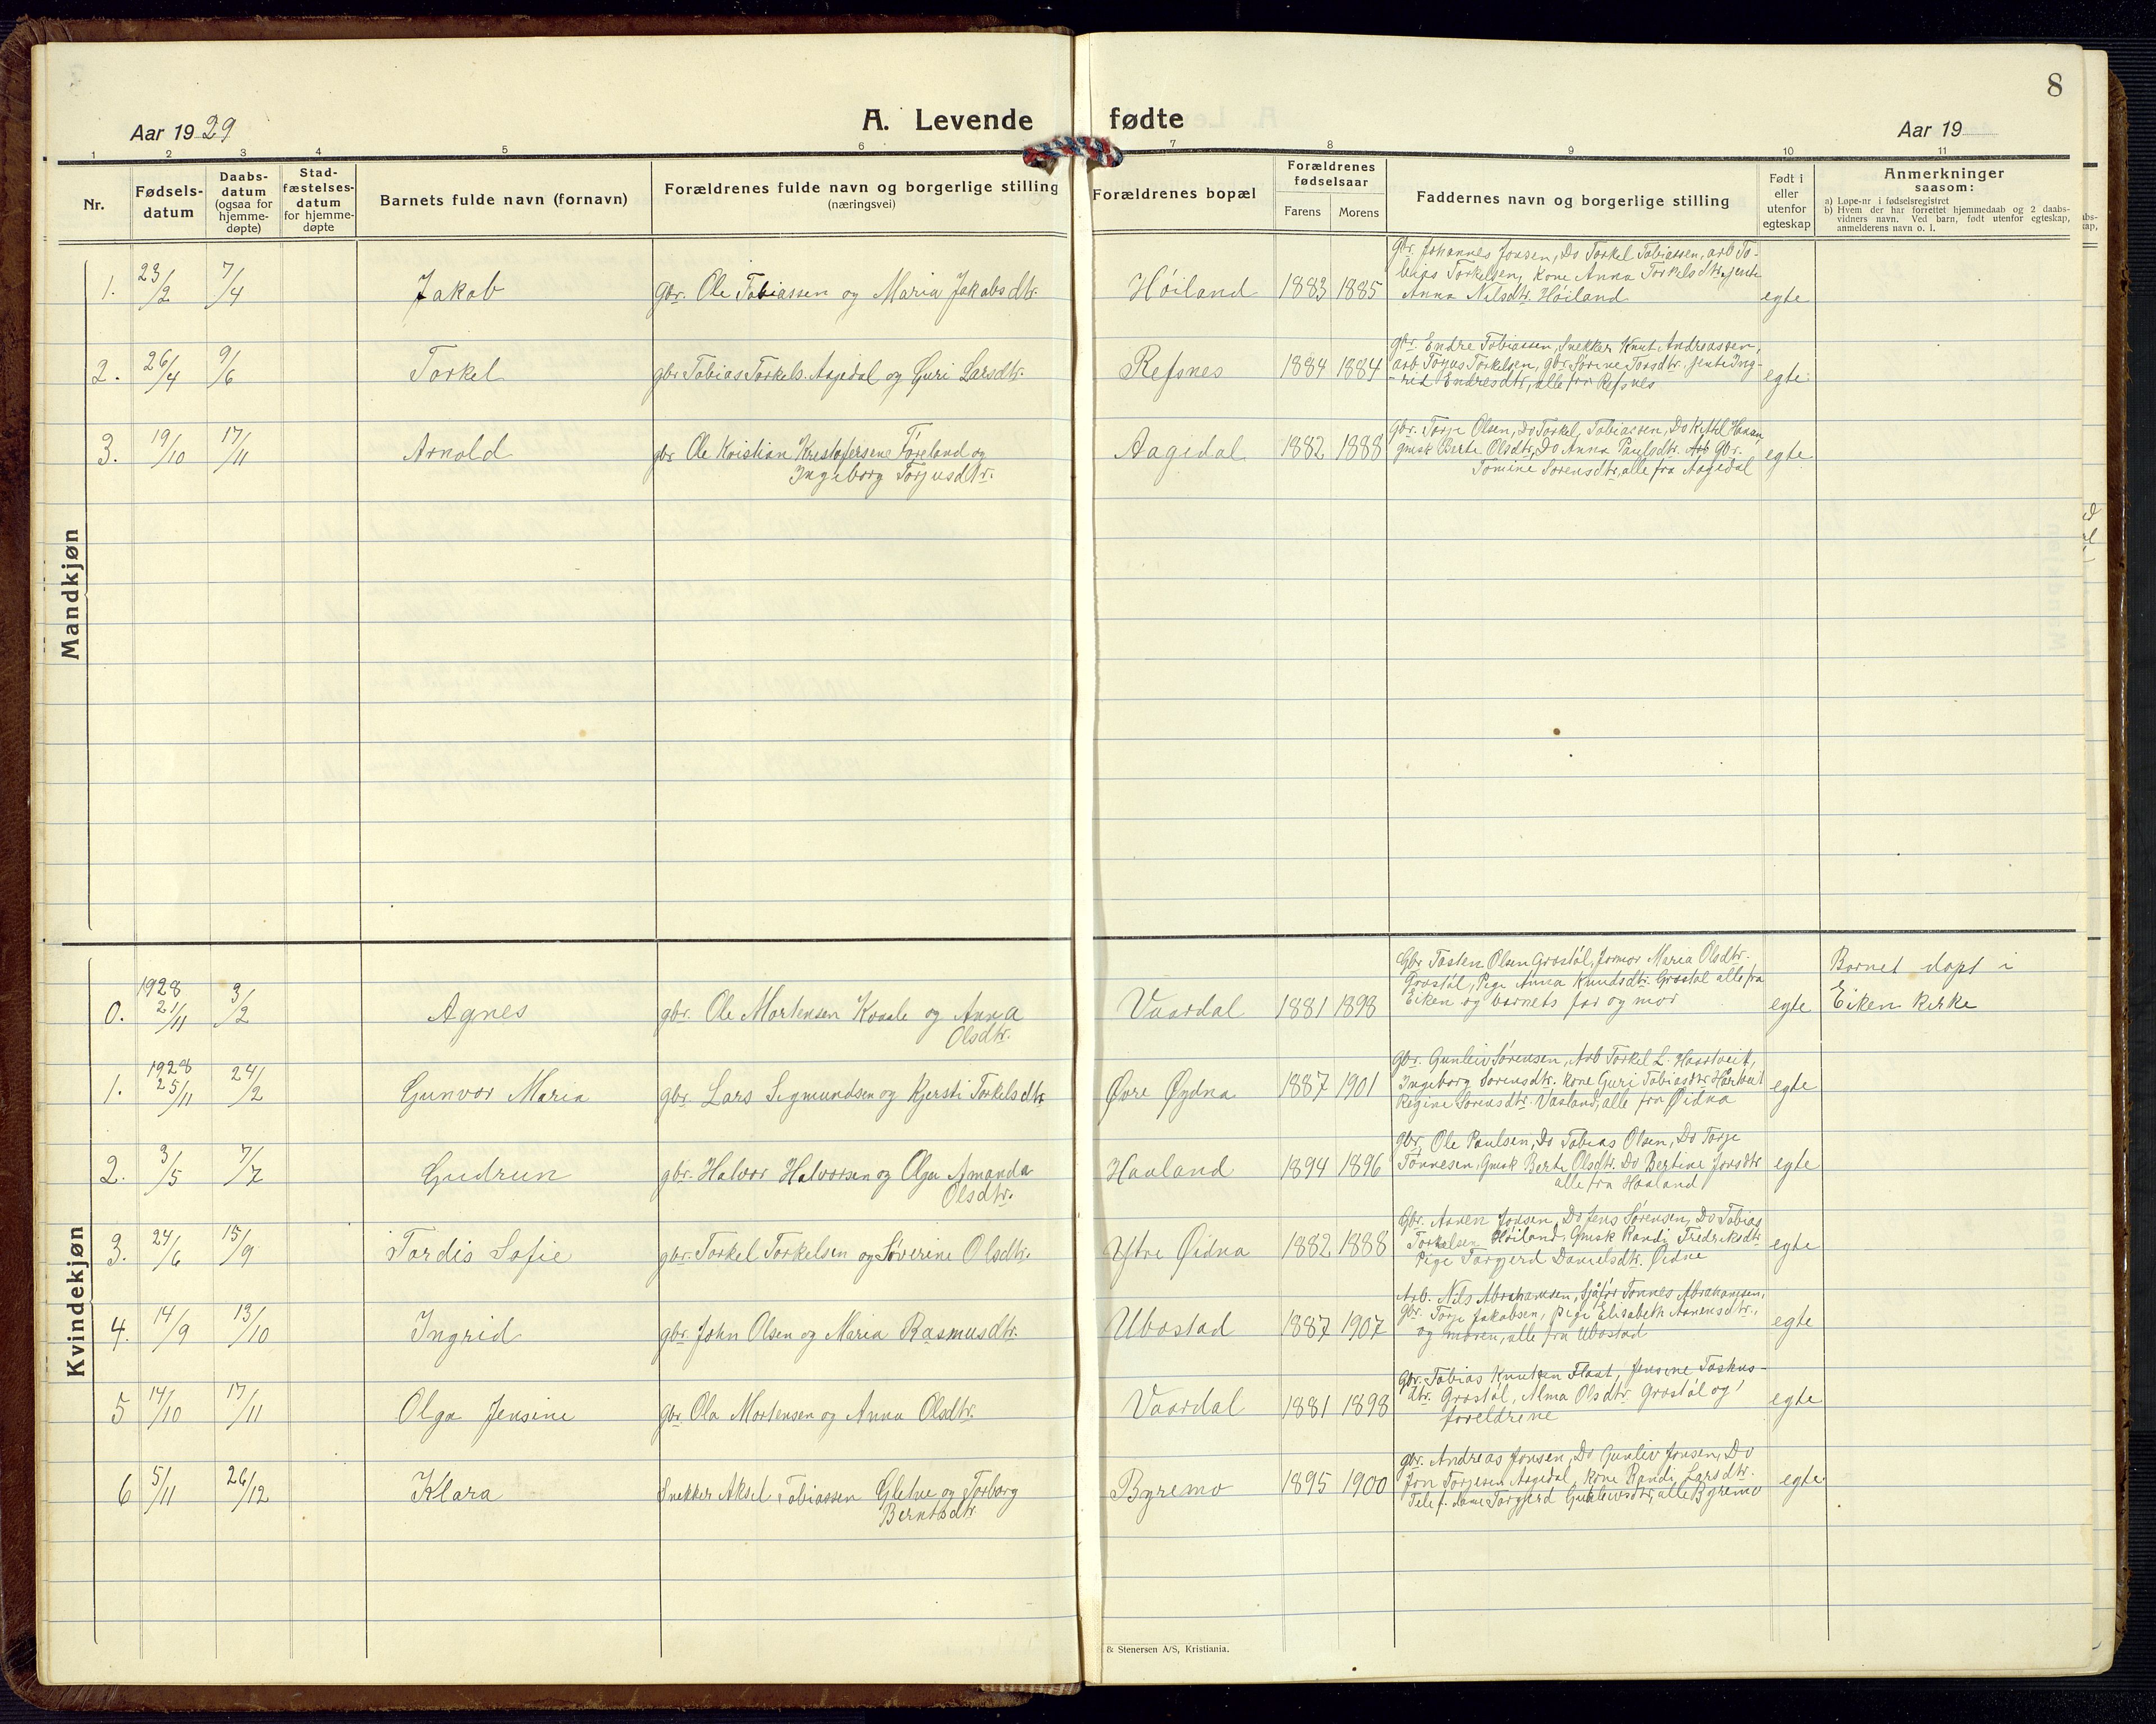 8
Aar 1929
A. Levende fødte
Aar 19
1 2 3 4 5 6 7 8 9 10 11
Nr.
Fødsels-
datum
Daabs-
datum
(ogsaa for
hjemme-
døpte)
Stad-
fæstelses-
datum
for hjemme-
døpte
Barnets fulde navn (fornavn)
Forældrenes fulde navn og borgerlige stilling
(næringsvei)
Forældrenes bopæl
Forældrenes
fødselsaar
Farens Morens
Faddernes navn og borgerlige stilling
Født i
eller
utenfor
egteskap
Anmerkninger
saasom:
a) Løpe-nr i fødselsregistret
b) Hvem der har forrettet hjemmedaab og 2 daabs-
vidners navn. Ved barn, født utenfor egteskap,
anmelderens navn o. l.
Mandkjøn
1. 23/2 7/4 Jakob gbr. Ole Tobiassen og Maria Jakobsdtr. Høiland 1883 1885
Gbr. Johannes Jonsen, Do Torkel Tobiassen, arb To-
bias Torkelsen, Kone Anna Torkelsdtr, jente
Anna Nilsdtr. Høiland
egte
2. 26/4 9/6 Torkel gbr Tobias Torkels. Aagedal og Guri Larsdtr. Refsnes 1884 1884
gbr. Endre Tobiassen, Snekker Knut Andreassen,
arb Torjus Torkelsen, Gbr Sørine Torsdtr. jente Ing-
rid Endresdtr, alle fra Refsnes
egte
3. 19/10 17/11 Arnold gbr Ole Kristian Kristofersene Føreland og
Ingeborg Torjusdtr.
Aagedal 1882 1888
Gbr. Torje Olsen, Do Torkel Tobiassen, Do Ketil
gmsk Berte Olsdtr, Do Anna Paulsdtr. Arb Gbr.
Tomine Sørensdtr, alle fra Aagedal
egte
Kvindekjøn
0. 1928 21/11 3/2 Agnes gbr. Ole Mortensen Kvaale og Anna
Olsdtr.
Vaardal 1881 1898
Gbr Tosten Olsen Grostøl, formor Maria Olsdtr.
Grostøl, Pige Anna Knudsdtr. Grostøl alle fra
Eiken og barnets far og mor
egte
Barnet døpt i
Eiken Kirke
1. 1928 25/11 24/2 Gunvor Maria gbr. Lars Sigmundsen og Kjersti Torkelsdtr Øvre Øydna 1887 1901
gbr. Gunleiv Sørensen, Arb Torkel L. Haartveit,
Ingeborg Sørensdtr. Kone Guri Tobiasdtr Hårtveit
Regine Sørensdtr. Vasland, alle fra Øidna
egte
2. 3/5 7/7 Gudrun gbr. Halvor Halvorsen og Olga Amanda
Olsdtr.
Haaland 1894 1896
gbr. Ole Paulsen, Do Tobias Olsen, Do Torje
Tønnesen, Gmsk Berte Olsdtr. Do Bertine Jonsdtr
alle fra Haaland
egte
3. 24/6 15/9 Tordis Sofie gbr. Torkel Torkelsen og Søverine Olsdtr. Ytre Øidna 1882 1888
Gbr. Aanen Jonsen, Do Jens Sørensen, Do Tobias
Torkelsen Høiland, Gmsk Randi Fredriksdtr
Pige Torgjerd Danielsdtr. Øidne
egte
4. 14/9 13/10 Ingrid gbr. John Olsen og Maria Rasmusdtr. Ubostad 1887 1907
Arb. Nils Abrahamsen, Sjåfør Tønnes Abrahamsen,
Gbr. Torje Jakobsen, pige Elisabeth Aanensdtr.,
og moren, alle fra Ubostad
egte
5 14/10 17/11 Olga Jensine gbr Ola Mortensen og Anna Olsdtr. Vaardal 1881 1898
Gbr. Tobias Knutsen Flaat, Jensine
dtr. Grostøl, Alma Olsdtr Grostøl og
foreldrene
egte
6 5/11 26/12 Klara Snekker Aksel Tobiassen Gletne og Torborg
Berntsdtr.
Byremo 1895 1900
gbr. Andreas Jonsen, Do Gunleiv Jonsen, Do
Jon Torjesen Aagedal, Kone Randi Larsdtr.
Telef. dame Torgjerd Gunleivsdtr, alle Byremo
egte
& Stenersen A/S, Kristiania.